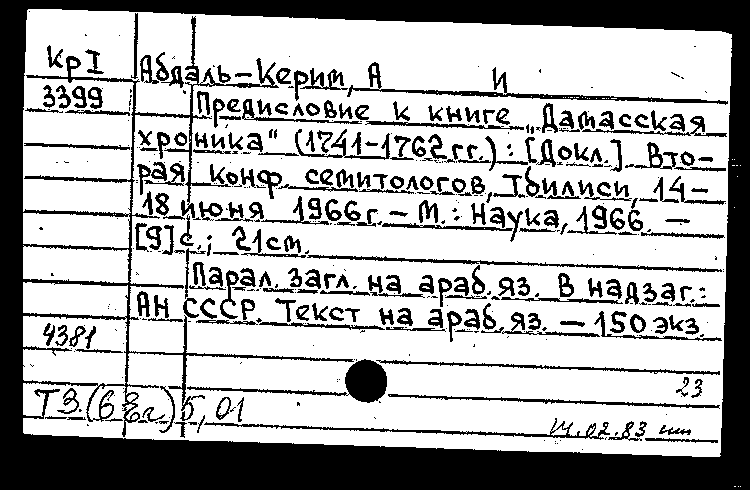 Кр I Абдаль-Керим, А И
3399 Предисловие к книге „Дамасская
хроника" (1741-1762 гг.) : [Докл.]. Вто-
рая конф. семитологов, Тбилиси, 14-
18 июня 1966 г. – М. : Наука, 1966. –
[9] с. ; 21 см.
Парал. загл. на араб. яз. В надзаг.:
АН СССР. Текст на араб. яз. – 150 экз.
4381
23
Т3.(6 )5,01
02.83